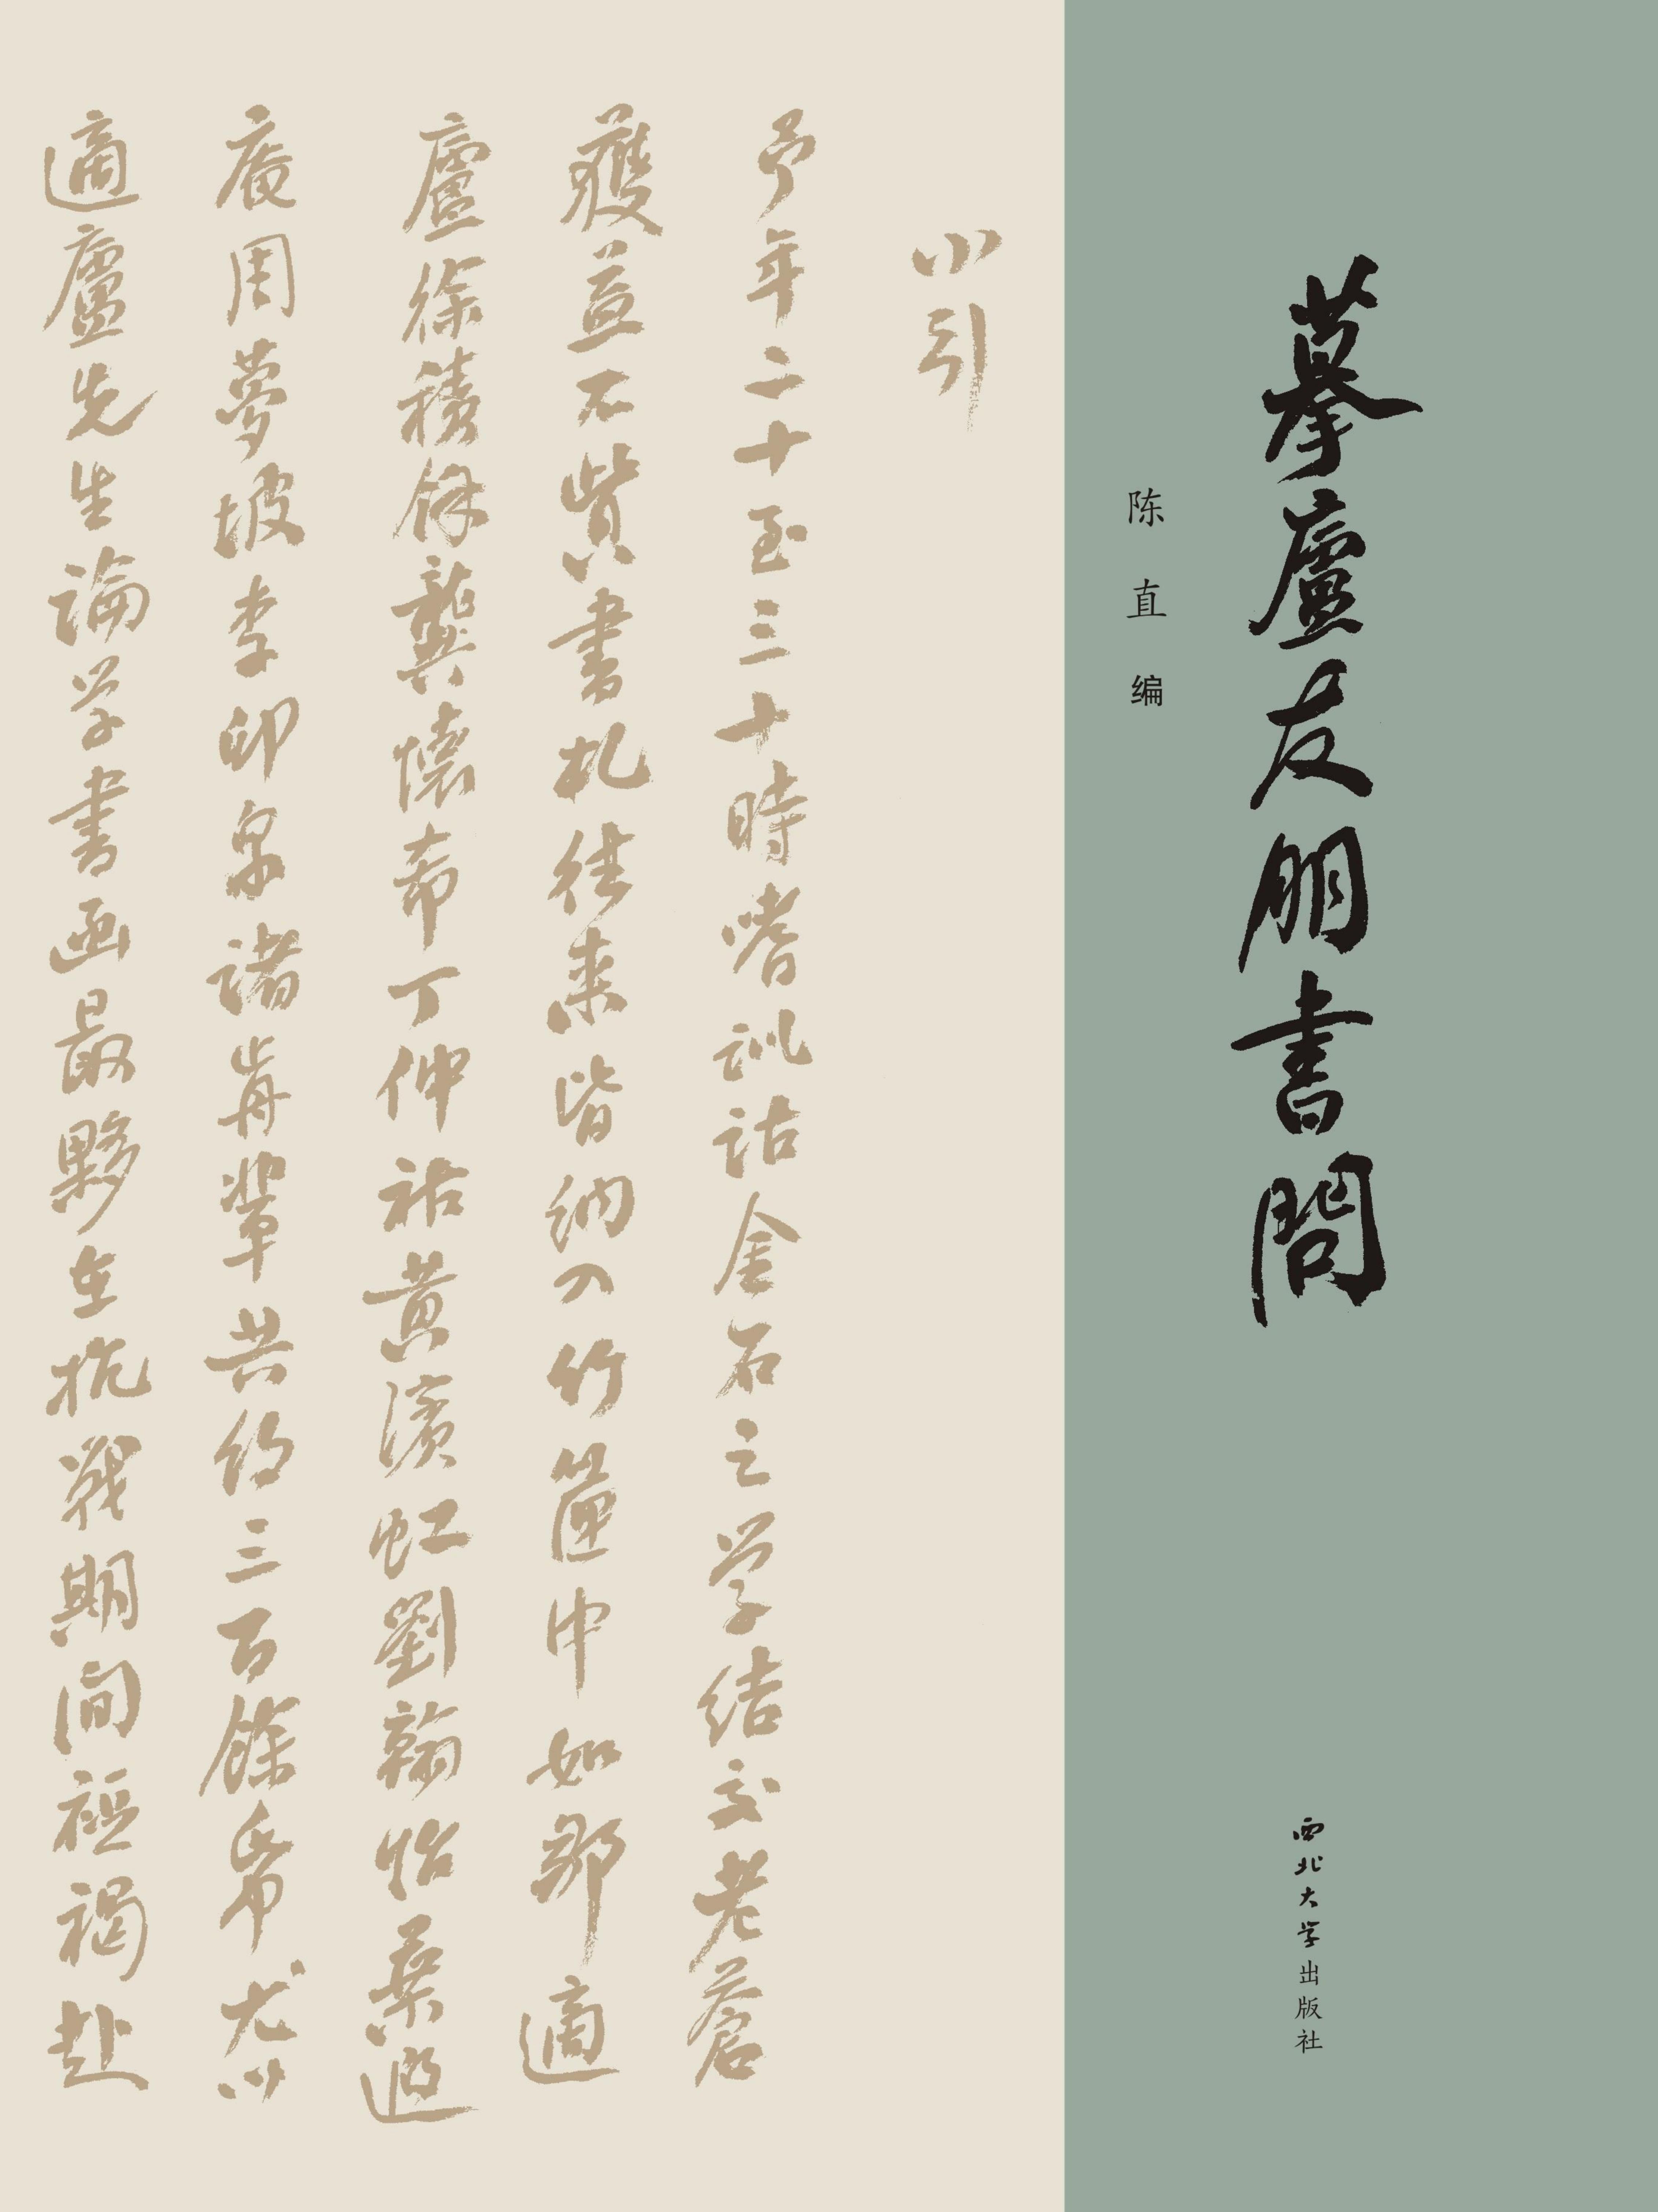 摹廬友朋書問
陈直编
西北大学出版社
小引
予年二十至三十時嗜訓詁金石之学结交老蒼
獲益不貲書札往来皆纳入竹箧中如鄒適
廬徐積餘龔懷希丁仲祜黄濱虹劉翰怡葉遐
庵周夢坡李印泉諸前輩共约三百餘帋尤以
適廬先生論学書画最夥在抗战期间裋褐赴